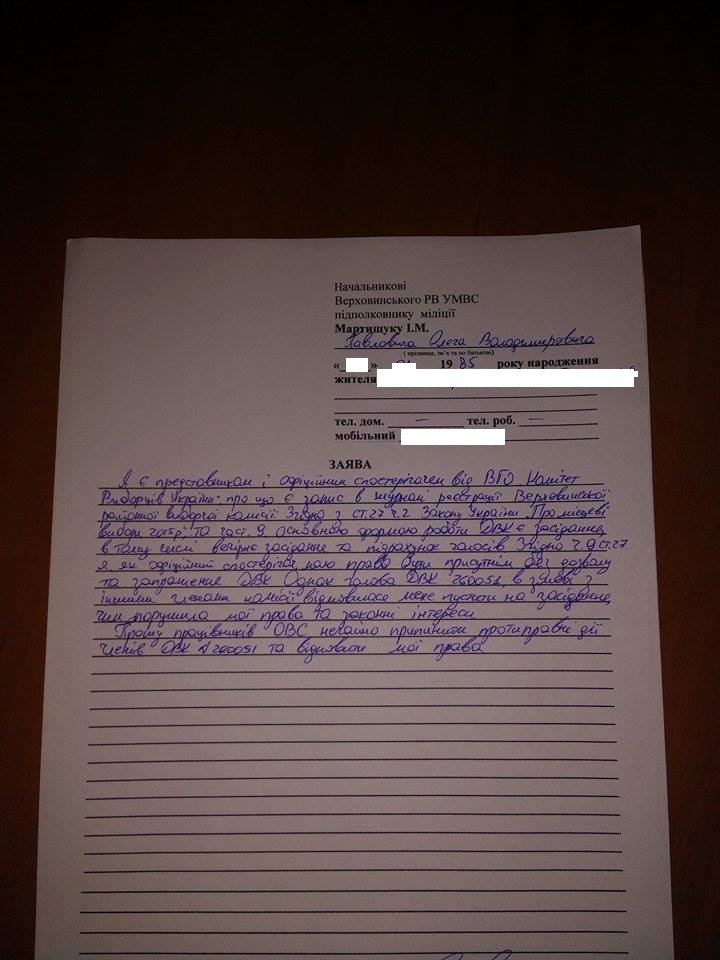 Начальникові
Верховинського РВ УМВС
підполковнику міліції
Мартищуку І.М.
Павловича Олега Володимировича
( прізвище, ім'я та по батькові)
« » 19 85 року народження
жителя
тел. дом. — тел. роб. —
мобільний
ЗАЯВА
Я є представником і офіційним спостерігачем від ВГО Комітет
Виборців України про що є запис в журналі реєстрації Верховинської
районної виборчої комісії Згідно з ст.27 ч.2 Закону України Про місцеві
вибори та част. 9 основною формою роботи ДВК є засідання,
в тому числі засідання та підрахунок голосів Згідно ч.9 ст.27
я як офіційний спостерігач маю право бути присутнім без дозволу
та запрошення ДВК Однак голова ДВК 260051 в з
іншими членами комісії відмовилася мене пустети на засідання,
чим порушила мої права та законні інтереси
Прошу працівників ОВС негайно припинити протиправні дії
членів ДВК №260051 та відновити мої права